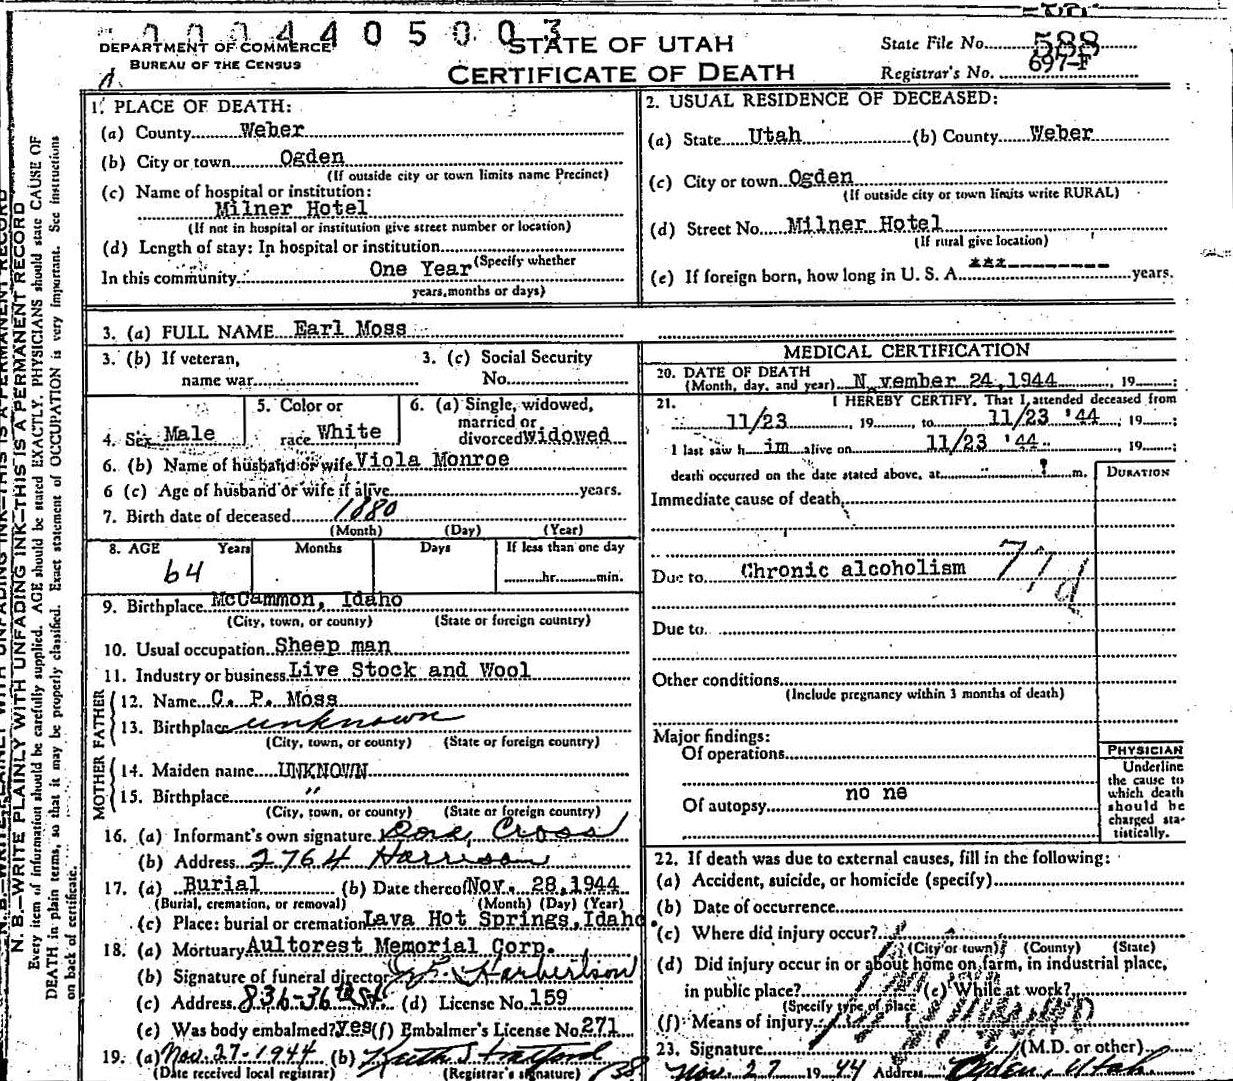 0004405003
DEPARTMENT OF COMMERCE
BUREAU OF THE CENSUS
STATE OF UTAH
CERTIFICATE OF DEATH
State File No. 588
Registrar's No. 697-F
1. PLACE OF DEATH:
(a) County Weber
(b) City or town Ogden
(If outside city or town limits name Precinct)
(c) Name of hospital or institution:
Milner Hotel
(If not in hospital or institution give street number or location)
(d) Length of stay: In hospital or institution
(Specify whether
In this community One Year
years, months or days)
2. USUAL RESIDENCE OF DECEASED:
(a) State Utah (b) County Weber
(c) City or town Ogden
(If outside city or town limits write RURAL)
(d) Street No. Milner Hotel
(If rural give location)
(e) If foreign born, how long in U. S. A. *** years.
3. (a) FULL NAME Earl Moss
3. (b) If veteran,
name war
3. (c) Social Security
No.
4. Sex Male
5. Color or
race White
6. (a) Single, widowed,
married or
divorced Widowed
6. (b) Name of husband or wife Viola Monroe
6 (c) Age of husband or wife if alive years.
7. Birth date of deceased 1880
(Month) (Day) (Year)
8. AGE Years Months Days If less than one day
64 hr. min.
9. Birthplace McCammon, Idaho
(City, town, or county) (State or foreign country)
10. Usual occupation Sheep man
11. Industry or business Live Stock and Wool
FATHER
12. Name C. P. Moss
13. Birthplace unknown
(City, town, or county) (State or foreign country)
MOTHER
14. Maiden name UNKNOWN
15. Birthplace "
(City, town, or county) (State or foreign country)
16. (a) Informant's own signature Cross
(b) Address 2764 Harrison
17. (a) Burial (b) Date thereof Nov. 28, 1944
(Burial, cremation, or removal) (Month) (Day) (Year)
(c) Place: burial or cremation Lava Hot Springs, Idaho.
18. (a) Mortuary Aultorest Memorial Corp.
(b) Signature of funeral director Harbertson
(c) Address 836-36th St (d) License No. 159
(e) Was body embalmed? Yes (f) Embalmer's License No. 271
19. (a) Nov. 27-1944 (b) Keith Stratford
(Date received local registrar) (Registrar's signature)
MEDICAL CERTIFICATION
20. DATE OF DEATH
(Month, day, and year) N vember 24, 1944, 19
21. I HEREBY CERTIFY, That I attended deceased from
11/23, 19, to 11/23 '44, 19
I last saw h im alive on 11/23 '44, 19
death occurred on the date stated above, at ? m.
DURATION
Immediate cause of death
Due to Chronic alcoholism 77d
Due to
Other conditions
(Include pregnancy within 3 months of death)
Major findings:
Of operations
Of autopsy no ne
PHYSICIAN
Underline
the cause to
which death
should be
charged sta-
tistically.
22. If death was due to external causes, fill in the following:
(a) Accident, suicide, or homicide (specify)
(b) Date of occurrence
(c) Where did injury occur?
(City or town) (County) (State)
(d) Did injury occur in or about home on farm, in industrial place,
in public place? (e) While at work?
(Specify type of place
(f) Means of injury
23. Signature (M.D. or other)
Nov. 27 1944 Address Ogden, Utah
N. B.—WRITE PLAINLY WITH UNFADING INK—THIS IS A PERMANENT RECORD
N. B.—WRITE PLAINLY WITH UNFADING INK—THIS IS A PERMANENT RECORD
Every item of information should be carefully supplied. AGE should be stated EXACTLY. PHYSICIANS should state CAUSE OF
DEATH in plain terms, so that it may be properly classified. Exact statement of OCCUPATION is very important. See instructions
on back of certificate.